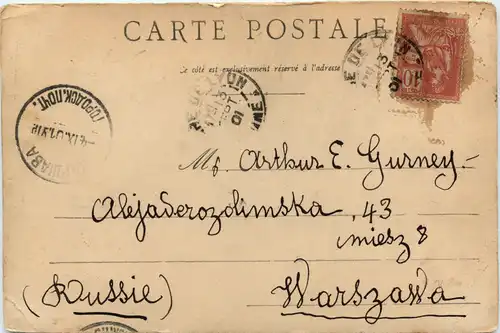 CARTE POSTALE
Ce côté est exclusivement réservé à l'adresse
Mr. Arthur E. Gurney-
Alejaderozolimska, 43
miesz 8
(Russie) Warszawa